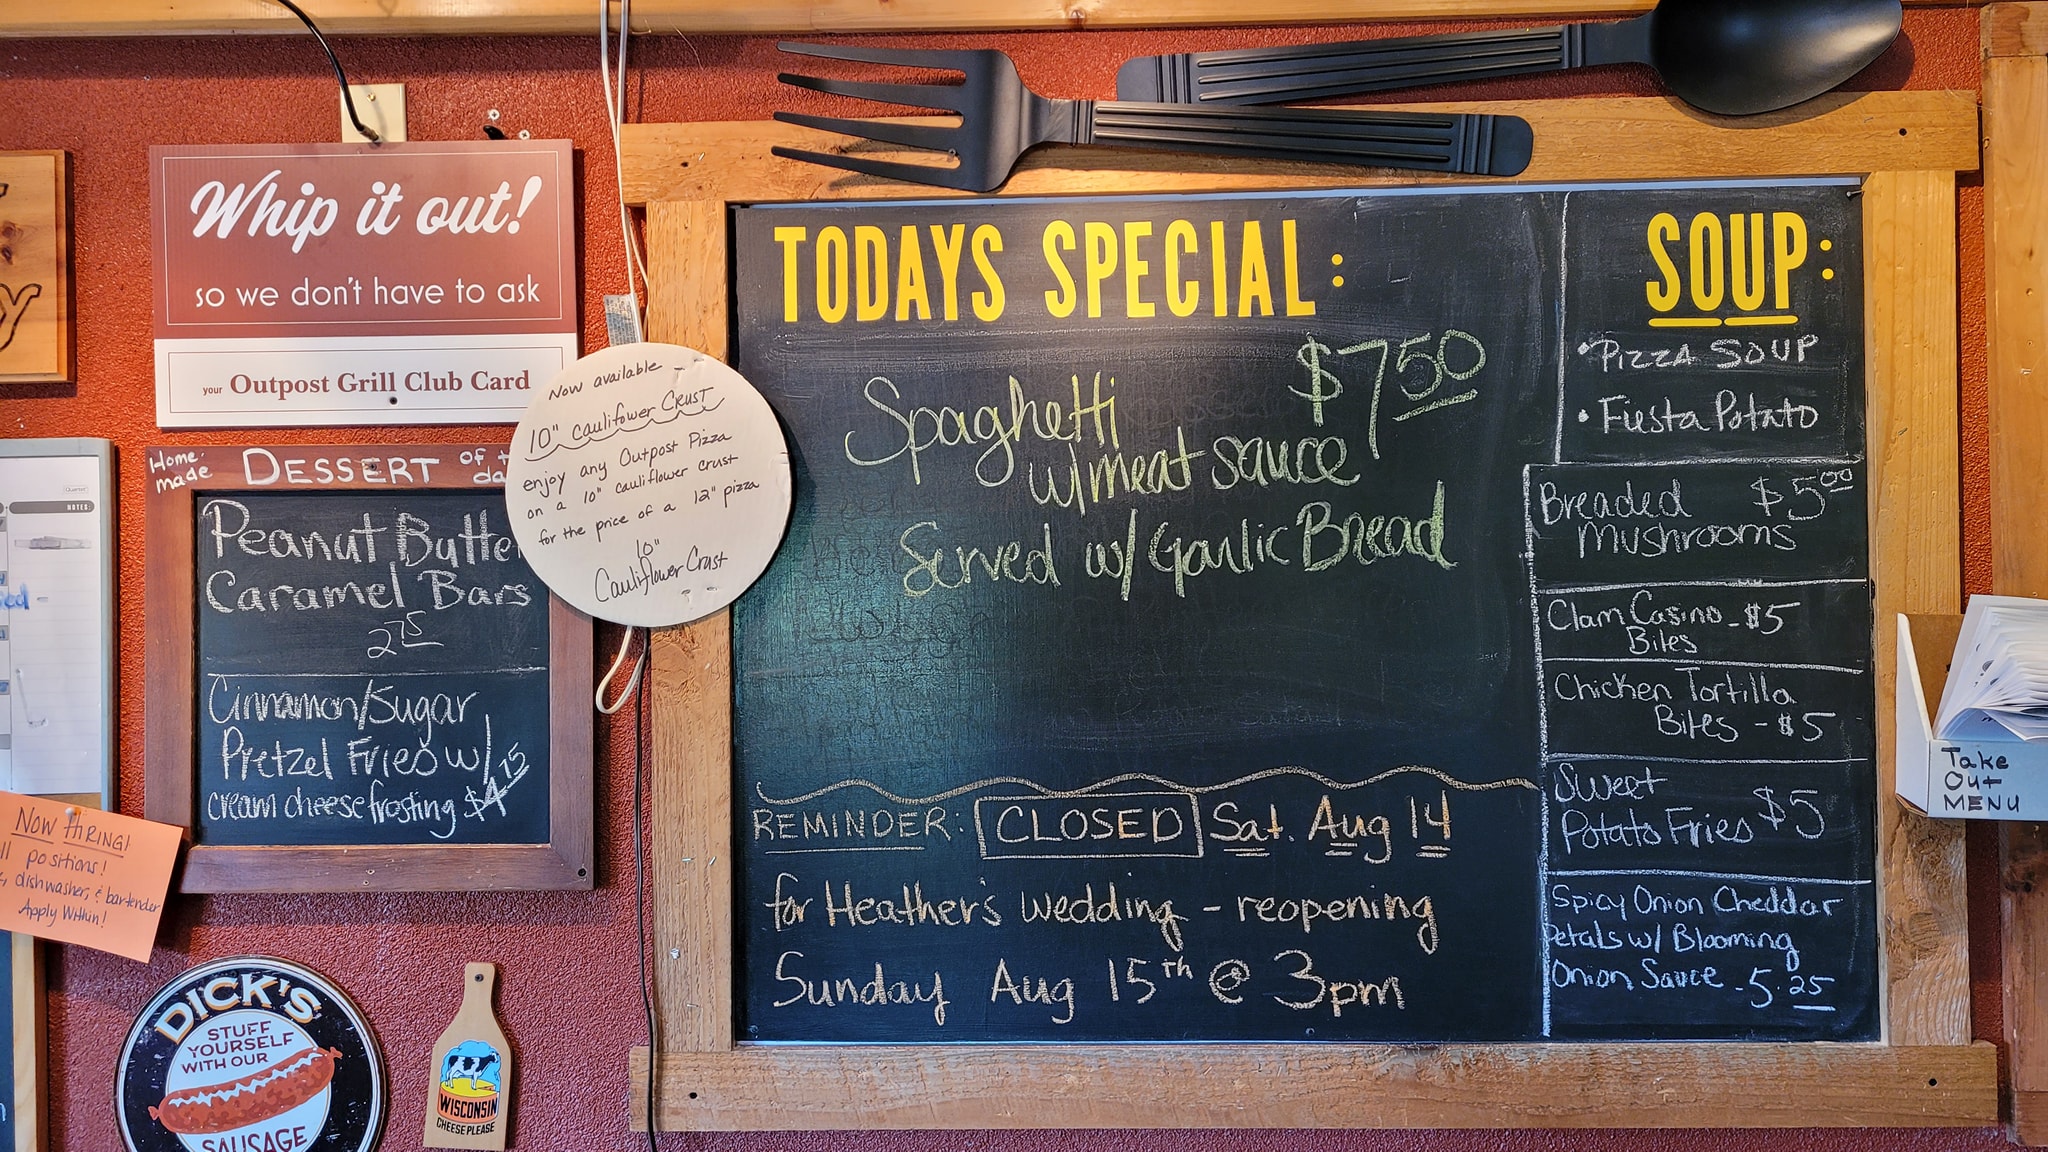 Whip it out!
so we don't have to ask
your Outpost Grill Club Card
Now available -
10" cauliflower CRUST
enjoy any Outpost Pizza
on a 10" cauliflower crust
for the price of a 12" pizza
10"
Cauliflower Crust
Home-
made
DESSERT of
Peanut Butte
Caramel Bars
2 75
Cinnamon/Sugar
Pretzel Fries w/
cream cheese frosting $4 75
NOTES:
NOW HIRING!
positions!
dishwasher, & bartender
Apply Within!
DICK'S
STUFF
YOURSELF
WITH OUR
SAUSAGE
WISCONSIN
CHEESE PLEASE
TODAYS SPECIAL:
$7 50
Spaghetti
w/meat sauce
Served w/ Garlic Bread
REMINDER: CLOSED Sat. Aug 14
for Heather's wedding - reopening
Sunday Aug 15th @ 3pm
SOUP:
• PIZZA SOUP
• Fiesta Potato
Breaded $5 00
Mushrooms
Clam Casino - $5
Bites
Chicken Tortilla
Bites - $5
Sweet
Potato Fries $5
Spicy Onion Cheddar
Petals w/ Blooming
Onion Sauce - 5.25
Take
Out
MENU